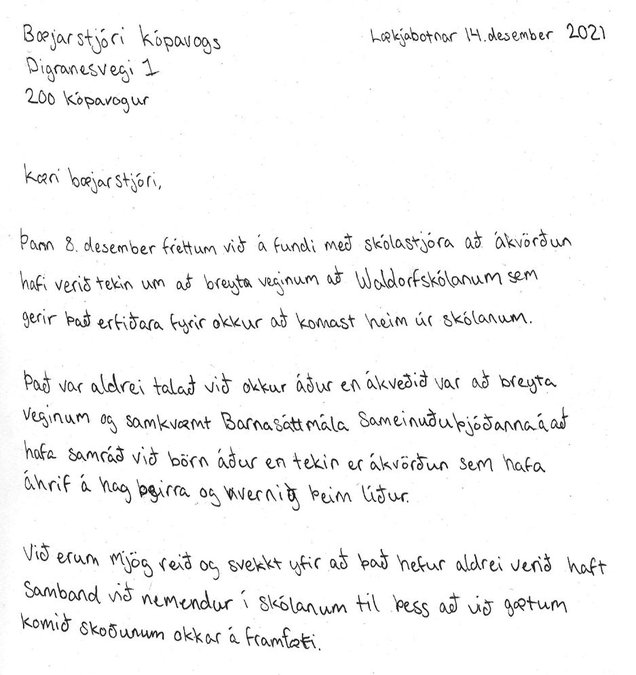 Bæjarstjóri Kópavogs
Lækjabotnar 14. desember 2021
Digranesvegi 1
200 Kópavogur
Kæri bæjarstjóri,
Þann 8. desember fréttum við á fundi með skólastjóra að ákvörðun
hafi verið tekin um að breyta veginum að Waldorfskólanum sem
gerir það erfiðara fyrir okkur að komast heim úr skólanum.
Það var aldrei talað við okkur áður en ákveðið var að breyta
veginum og samkvæmt Barnasáttmála Sameinuðu þjóðanna á að
hafa samráð við börn áður en tekin er ákvörðun sem hafa
áhrif á hag þeirra og hvernig þeim líður.
Við erum mjög reið og svekkt yfir að það hefur aldrei verið haft
samband við nemendur í skólanum til þess að við gætum
komið skoðunum okkar á framfæri.